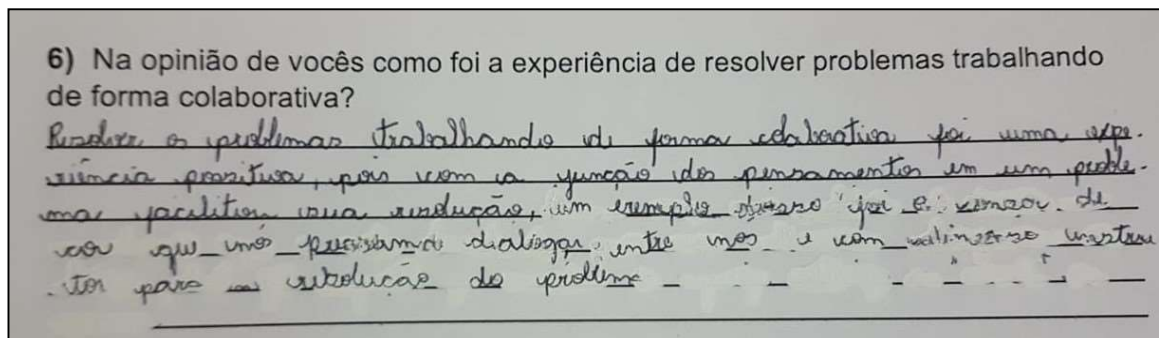 6) Na opinião de vocês como foi a experiência de resolver problemas trabalhando
de forma colaborativa?
Resolver os problemas trabalhando de forma colaborativa foi uma expe-
riência positiva, pois com a junção dos pensamentos em um proble-
ma facilitou sua resolução, um exemplo disso foi
que nós precisamos dialogar entre nós e com
para a resolução do problema